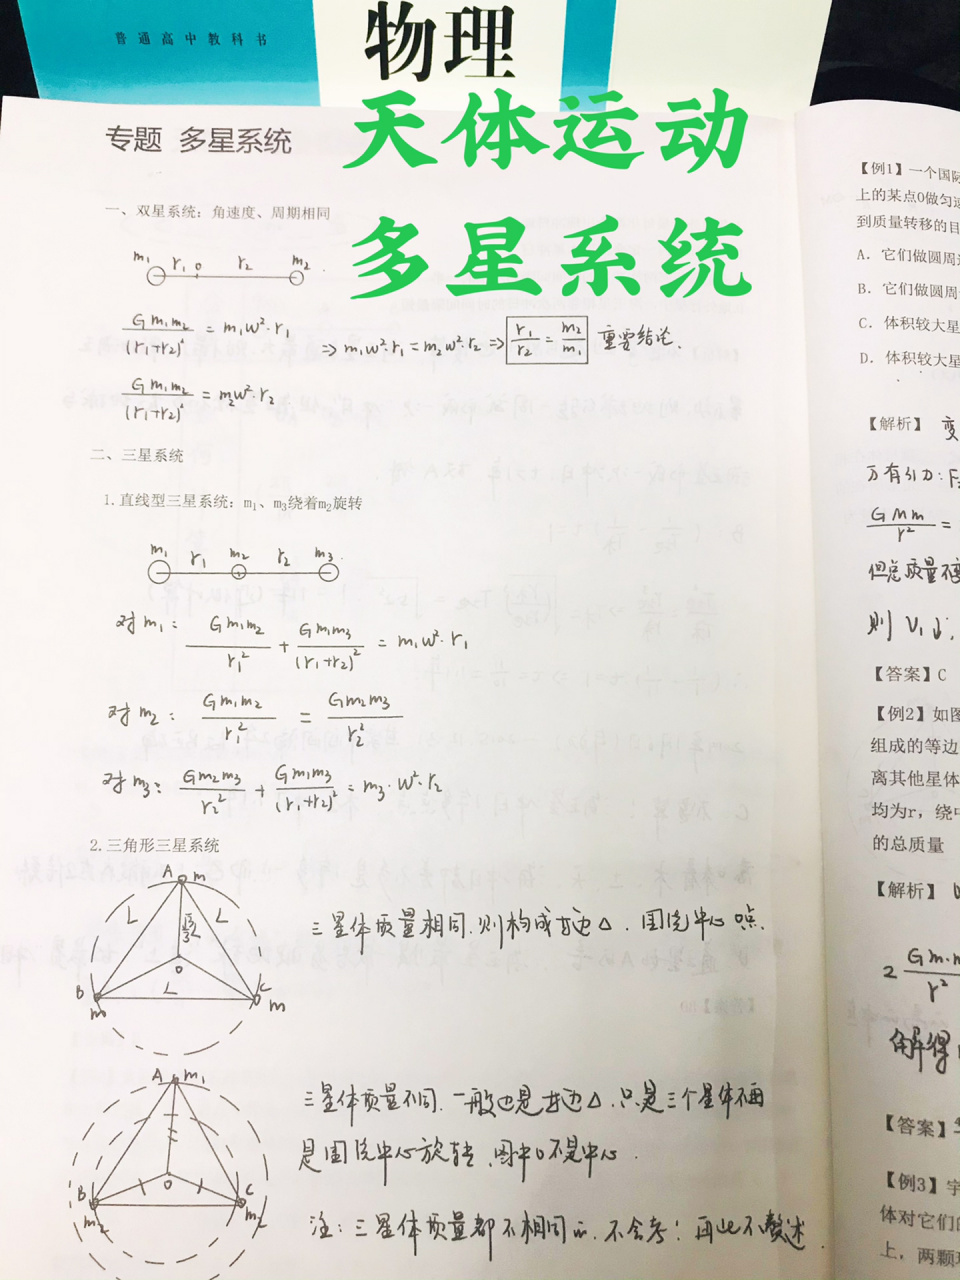 普通高中教科书
物理
天体运动
多星系统
专题 多星系统
一、双星系统：角速度、周期相同
m₁ r₁ o r₂ m₂
Gm₁m₂/(r₁+r₂)² = m₁ω²·r₁
⇒ m₁ω²·r₁ = m₂ω²·r₂ ⇒ r₁/r₂ = m₂/m₁ 重要结论.
Gm₁m₂/(r₁+r₂)² = m₂ω²·r₂
二、三星系统
1.直线型三星系统：m₁、m₃绕着m₂旋转
m₁ r₁ m₂ r₂ m₃
对m₁： Gm₁m₂/r₁² + Gm₁m₃/(r₁+r₂)² = m₁ω²·r₁
对m₂： Gm₁m₂/r₁² = Gm₂m₃/r₂²
对m₃： Gm₂m₃/r₂² + Gm₁m₃/(r₁+r₂)² = m₃·ω²·r₂
2.三角形三星系统
A m
L √3/3L L
O
B L C
m m
三星体质量相同.则构成等边△.围绕中心O点.
A m₁
O
B C
m₂ m₂
三星体质量不同.一般也是等边△.只是三个星体不再
是围绕中心旋转.图中O不是中心.
注：三星体质量都不相同的.不会考！再此不赘述.
【例1】一个国际
上的某点O做匀速
到质量转移的目
A．它们做圆周运
B．它们做圆周
C．体积较大星
D．体积较大星
【解析】 变
万有引力：F
GMm/r² =
但总质量不变
则 V₁↓.
【答案】C
【例2】如图
组成的等边
离其他星体
均为r，绕中
的总质量
【解析】
2 Gm·m/r²
解得
【答案】
【例3】宇
体对它们的
上，两颗环